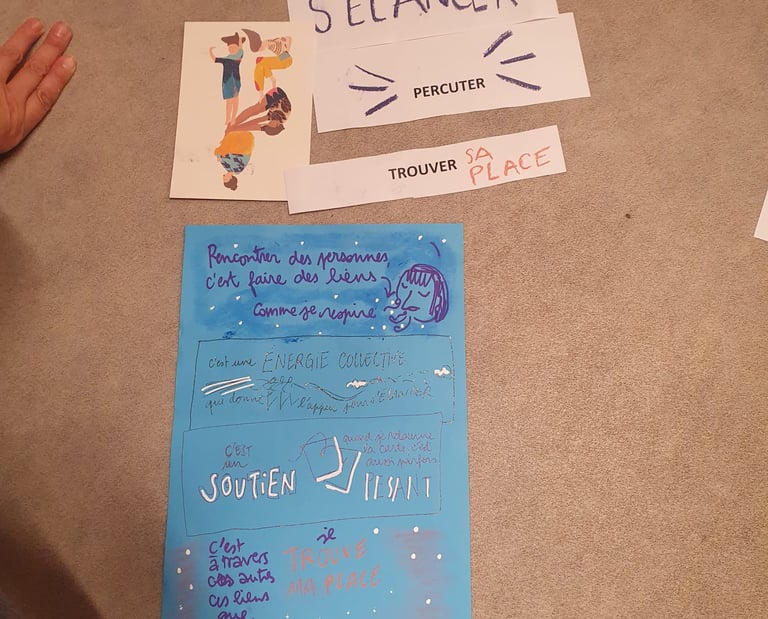 S'ÉLANCER
PERCUTER
TROUVER SA PLACE
Rencontrer des personnes
c'est faire des liens
Comme je respire
c'est une ÉNERGIE COLLECTIVE
qui donne l'appui pour s'ÉLANCER
C'EST un SOUTIEN
quand je retourne
la carte c'est
aussi parfois
PESANT
C'est
à travers
ces autres
ces liens
que
je
TROUVE
MA PLACE